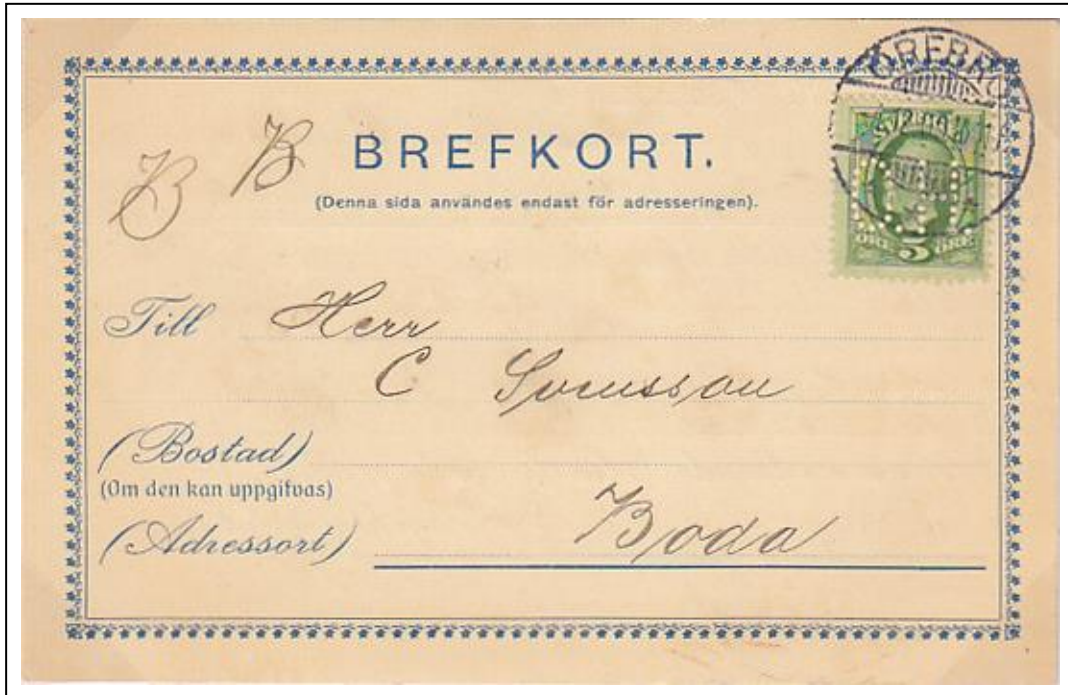 ÖREBRO
B B
BREFKORT.
(Denna sida användes endast för adresseringen).
5
ÖRE ÖRE
Till Herr
C Svensson
(Bostad)
(Om den kan uppgifvas)
(Adressort) Boda